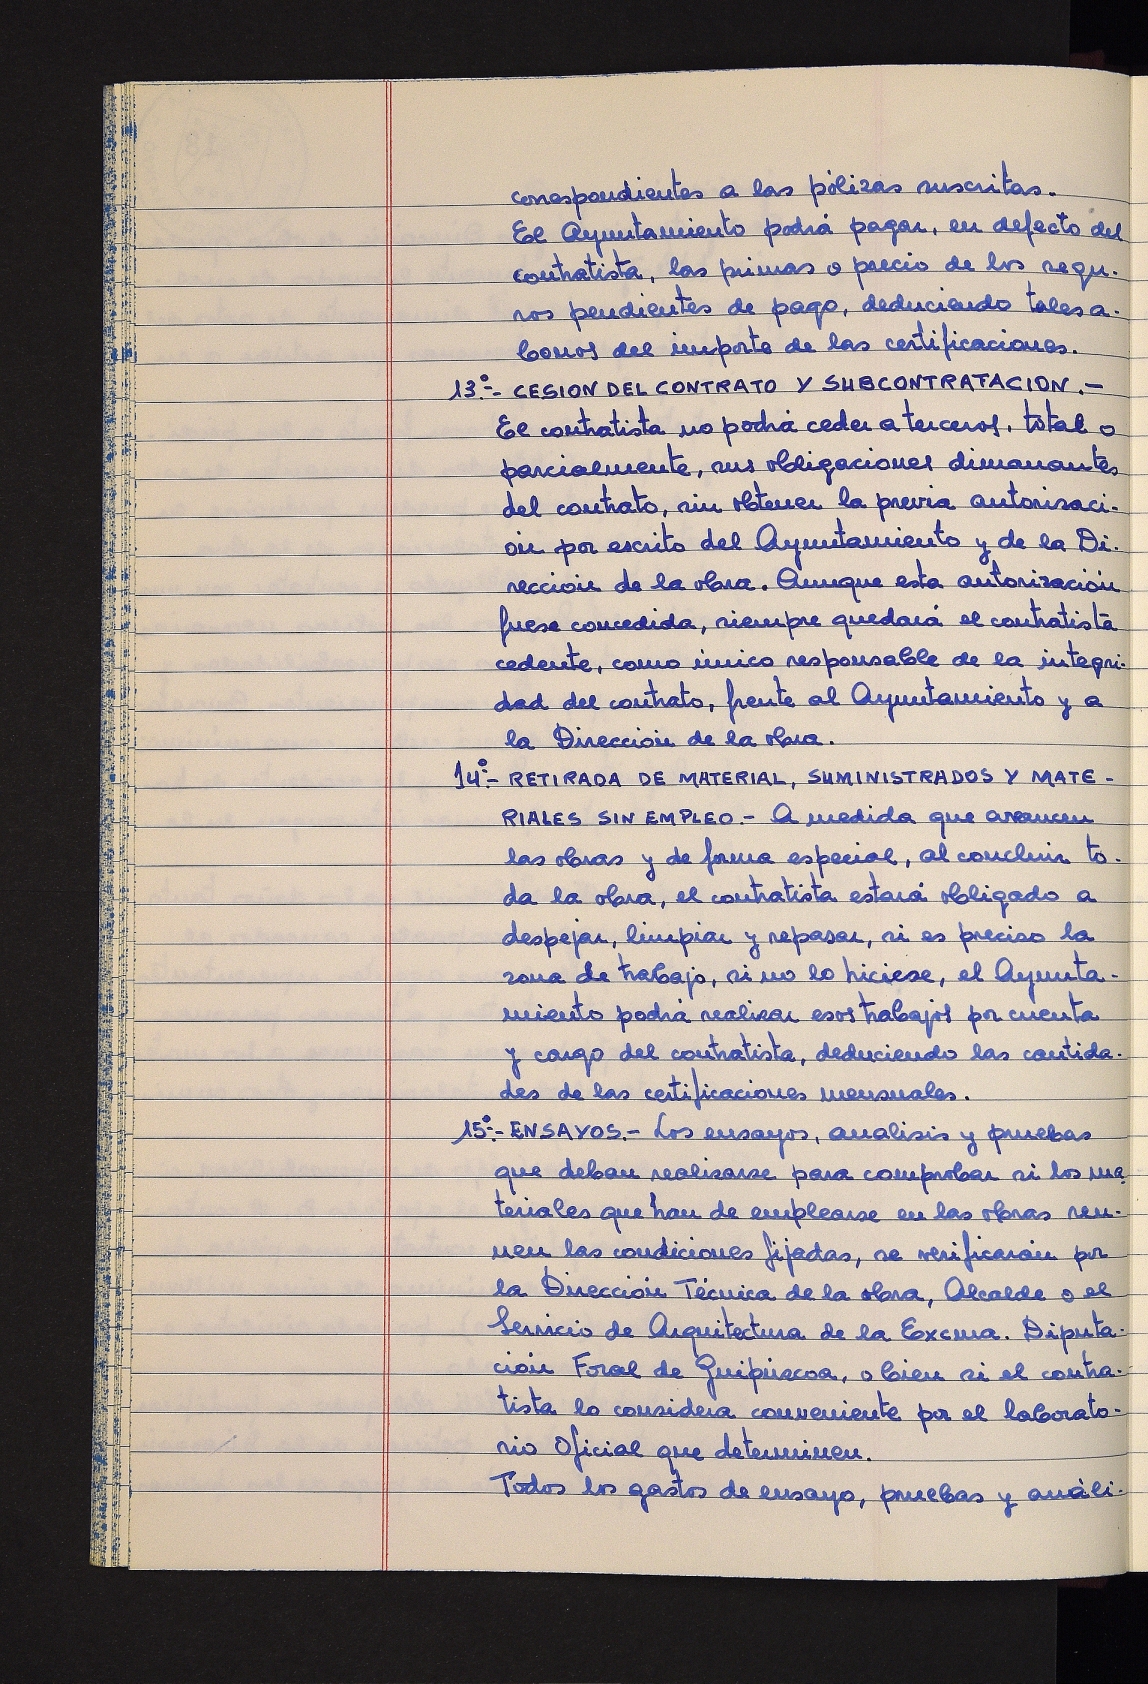 correspondientes a las pólizas suscritas.
El Ayuntamiento podrá pagar, en defecto del
contratista, las primas o precio de los segu-
ros pendientes de pago, deduciendo tales a-
bonos del importe de las certificaciones.
13º.- CESION DEL CONTRATO Y SUBCONTRATACION.-
El contratista no podrá ceder a terceros, total o
parcialmente, sus obligaciones dimanantes
del contrato, sin obtener la previa autorizaci-
ón por escrito del Ayuntamiento y de la Di-
rección de la obra. Aunque esta autorización
fuese concedida, siempre quedará el contratista
cedente, como único responsable de la integri-
dad del contrato, frente al Ayuntamiento y a
la Dirección de la obra.
14º.- RETIRADA DE MATERIAL, SUMINISTRADOS Y MATE-
RIALES SIN EMPLEO.- A medida que avancen
las obras y de forma especial, al concluir to-
da la obra, el contratista estará obligado a
despejar, limpiar y repasar, si es preciso la
zona de trabajo, si no lo hiciese, el Ayunta-
miento podrá realizar esos trabajos por cuenta
y cargo del contratista, deduciendo las cantida-
des de las certificaciones mensuales.
15º.- ENSAYOS.- Los ensayos, analisis y pruebas
que deban realizarse para comprobar si los ma-
teriales que han de emplearse en las obras reu-
nen las condiciones fijadas, se verificarán por
la Dirección Técnica de la obra, Alcalde o el
Servicio de Arquitectura de la Excma. Diputa-
ción Foral de Guipúzcoa, o bien si el contra-
tista lo considera conveniente por el laborato-
rio Oficial que determinen.
Todos los gastos de ensayo, pruebas y análi-